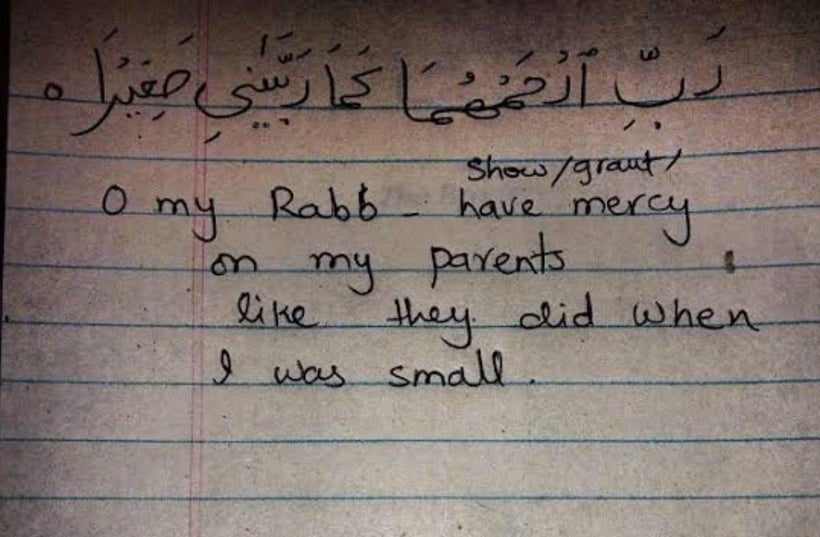 رَبِّ ٱرْحَمْهُمَا كَمَا رَبَّيَٰنِي صَغِيرًا ه
Show/grant/
O my Rabb - have mercy
on my parents
like they did when
I was small.